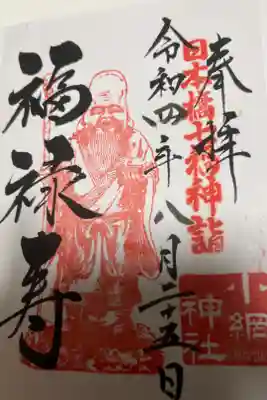 奉拝
日本橋七福神詣
令和四年八月二十五日
福禄寿
小網
神社